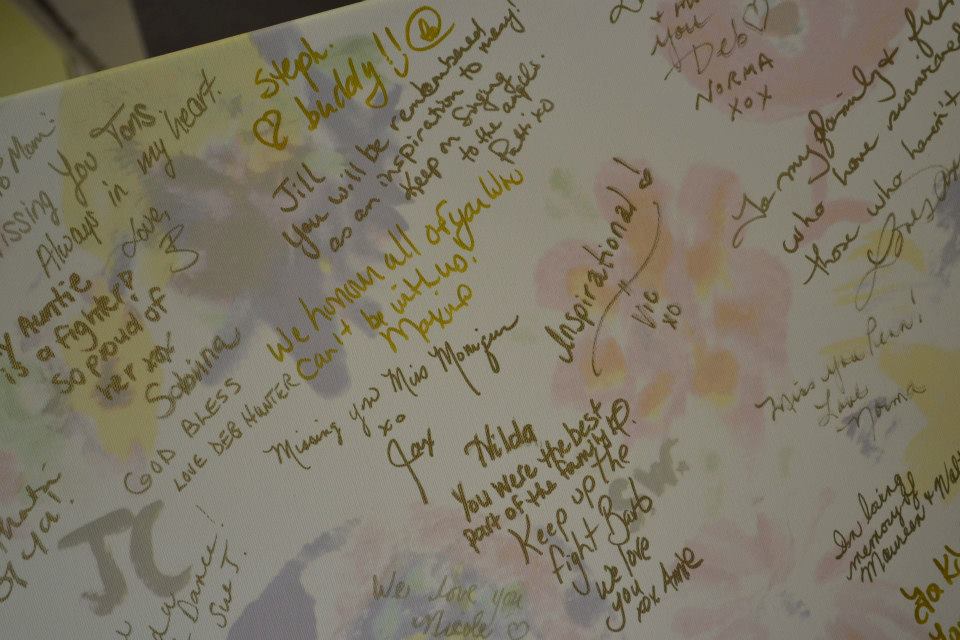 Missing You Tons
Always in my heart.
Love,
B
Auntie
is a fighter!
So proud of
her xox
Sabrina
Steph.
♡ buddy!!
Jill
You will be remembered
as an inspiration to many!
Keep on singing
to the angels.
Patti xo
We honour all of you who
can't be with us!
Maxie
GOD BLESS
LOVE DEB HUNTER
Missing you Miss Monique
xo
Jax
Inspirational!
Vio
xo
You
Deb ♡
NORMA
XOX
To my family &
who have survived
those who haven't
Miss you Penn!
Love
Norma
Nilda
You were the best
part of the family xo.
Keep up the
fight Barb
We love
you
xox Anne
SW.
JC
Dance!
Sue J.
We Love you
Nicole ♡
In loving
memory of
Maureen &